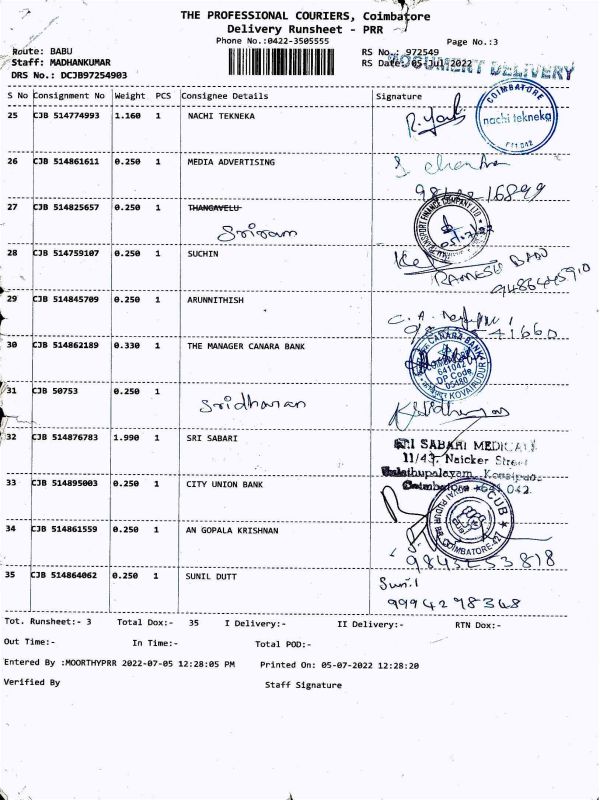 THE PROFESSIONAL COURIERS, Coimbatore
Delivery Runsheet - PRR
Phone No.:0422-3505555
Page No.:3
Route: BABU
RS No.: 972549
Staff: MADHANKUMAR
RS Date: 05-Jul-2022
DOCUMENT DELIVERY
DRS No.: DCJB97254903
S No Consignment No Weight PCS Consignee Details Signature
25 CJB 514774993 1.160 1 NACHI TEKNEKA
COIMBATORE
nachi tekneka
26 CJB 514861611 0.250 1 MEDIA ADVERTISING
27 CJB 514825657 0.250 1 THANGAVELU
Sriram
28 CJB 514759107 0.250 1 SUCHIN
RAMESH BABU
29 CJB 514845709 0.250 1 ARUNNITHISH
41660
30 CJB 514862189 0.330 1 THE MANAGER CANARA BANK
CANARA BANK
641042
DP Code
05480
KOVAIPUDUR
31 CJB 50753 0.250 1
Sridharan
32 CJB 514876783 1.990 1 SRI SABARI
SRI SABARI MEDICALS
11/43, Naicker Street
33 CJB 514895003 0.250 1 CITY UNION BANK
Coimbatore - 641 042.
CUB
COIMBATORE-42
34 CJB 514861559 0.250 1 AN GOPALA KRISHNAN
35 CJB 514864062 0.250 1 SUNIL DUTT
Sunil
9994298348
Tot. Runsheet:- 3 Total Dox:- 35 I Delivery:- II Delivery:- RTN Dox:-
Out Time:- In Time:- Total POD:-
Entered By :MOORTHYPRR 2022-07-05 12:28:05 PM Printed On: 05-07-2022 12:28:20
Verified By Staff Signature